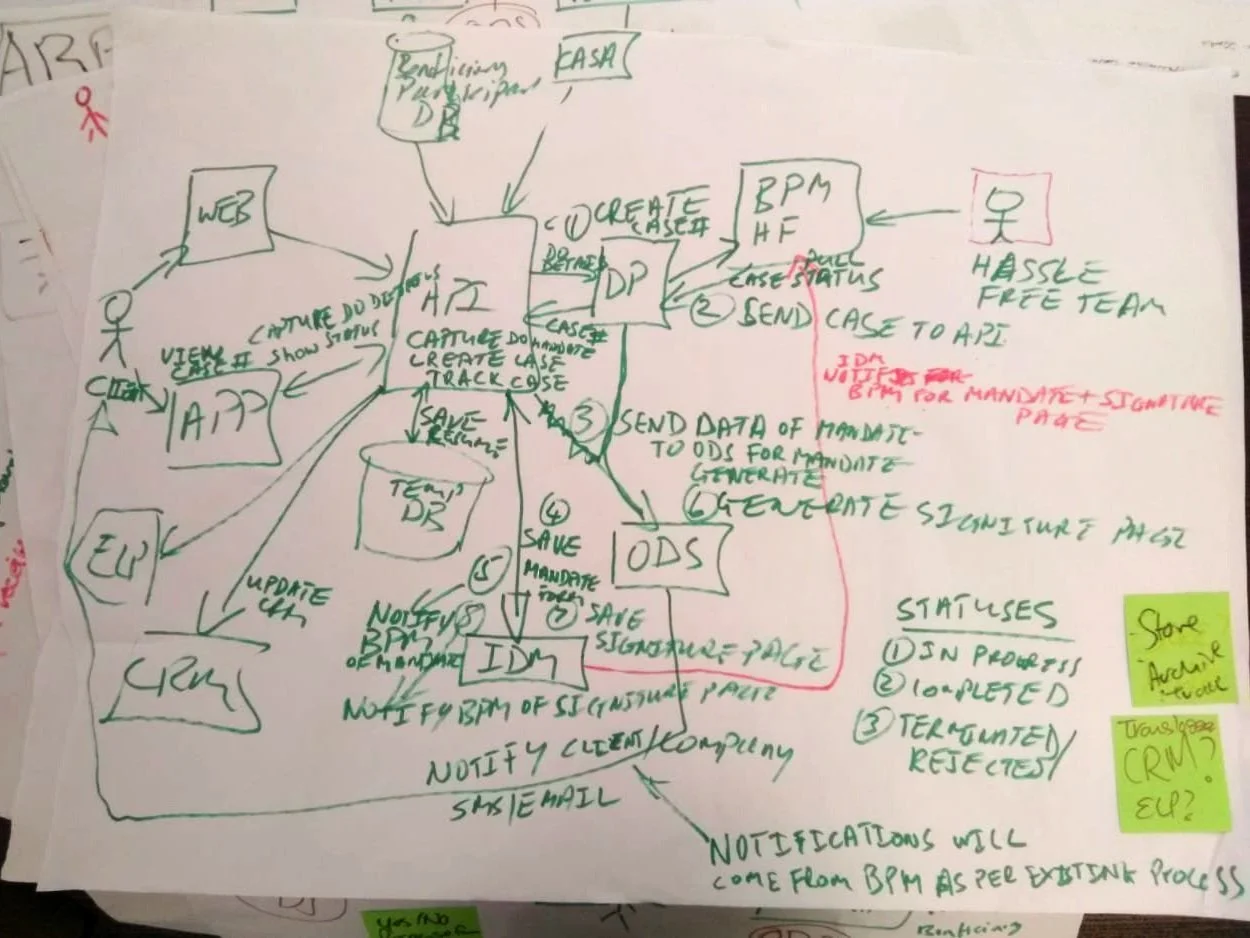 ARP
Beneficiary
Participan
DB
CASA
WEB
① CREATE
CASE#
BPM
HF
DO
DETAILS
DP
PULL
CASE STATUS
HASSLE
FREE TEAM
API
CAPTURE DO DETAILS
CAPTURE DO MANDATE
CREATE CASE
TRACK CASE
CASE#
② SEND CASE TO API
VIEW
CASE #
SHOW STATUS
CLIENT
APP
IDM
BPM FOR MANDATE + SIGNATURE
PAGE
SAVE
RESUME
③ SEND DATA OF MANDATE
TO ODS FOR MANDATE
GENERATE
TEMP
DB
⑥ GENERATE SIGNITURE PAGE
④
SAVE
MANDATE
FORM
ODS
EUP
UPDATE
CRM
⑤
NOTIFY ⑧
BPM
OF MANDATE
⑦ SAVE
SIGNITURE PAGE
IDM
CRM
NOTIFY BPM OF SIGNITURE PAGE
STATUSES
① IN PROGRESS
② COMPLETED
③ TERMINATED/
REJECTED/
Store
Archive
CRM?
NOTIFY CLIENT/COMPANY
SMS/EMAIL
NOTIFICATIONS WILL
COME FROM BPM AS PER EXISTINK PROCESS
Yes/No